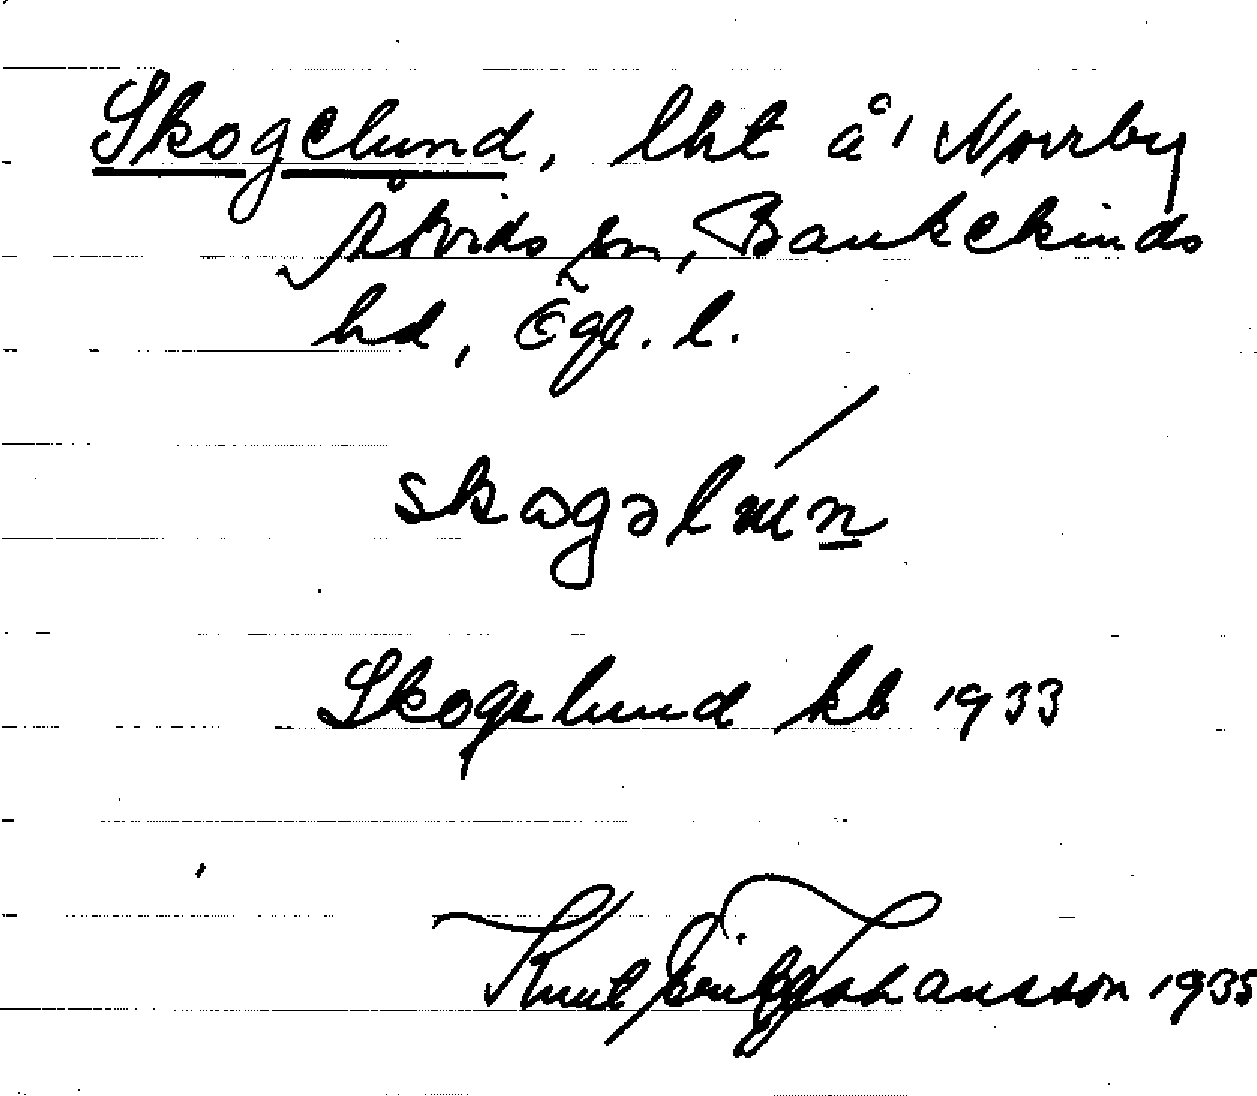 Skogslund, lht å' Norrby
Åtvids sn, Bankekinds
hd, Ögl. l.
skogəlun
Skogslund kb 1933
Knut Erik Johansson 1935